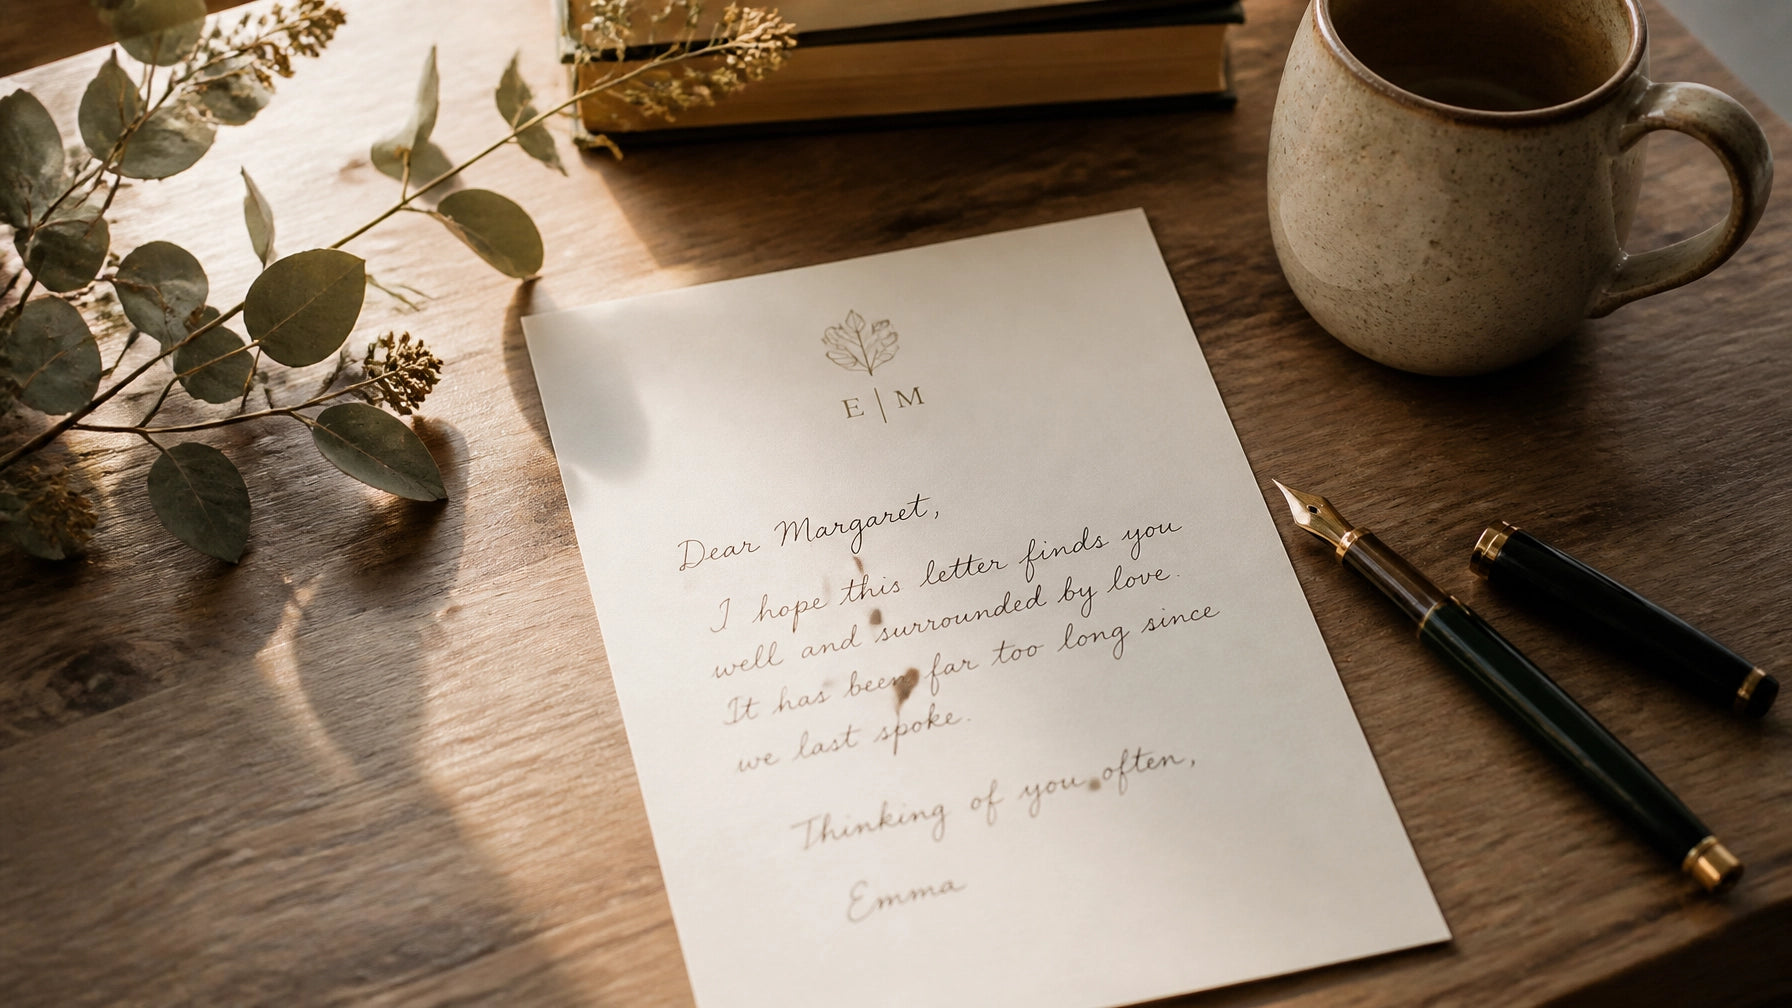 E | M
Dear Margaret,
I hope this letter finds you
well and surrounded by love.
It has been far too long since
we last spoke.
Thinking of you often,
Emma